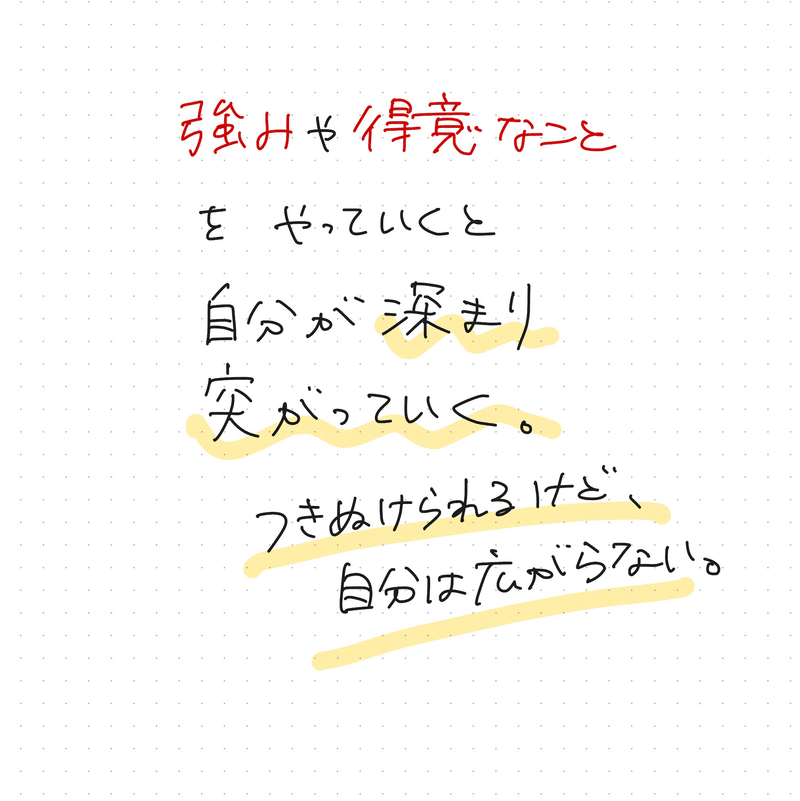 強みや得意なこと
を やっていくと
自分が深まり
突がっていく。
つきぬけられるけど、
自分は広がらない。